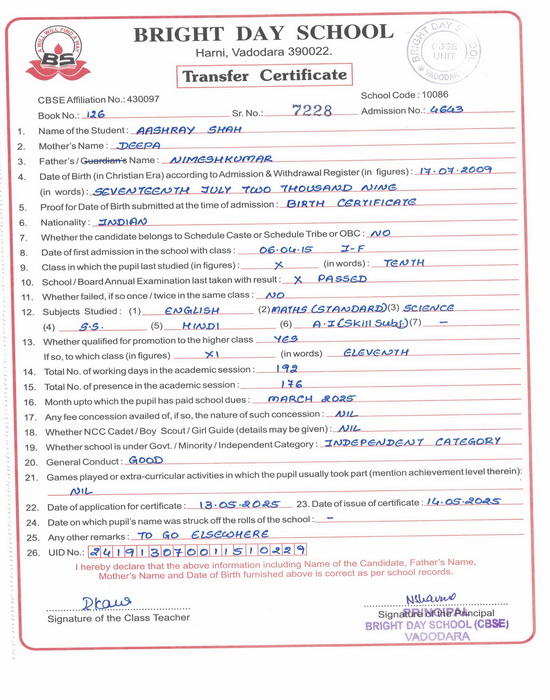 A WILL WILL FIND A WAY
BS
BRIGHT DAY SCHOOL
Harni, Vadodara 390022.
Transfer Certificate
BRIGHT DAY SCHOOL
CBSE
UNIT
VADODARA
CBSE Affiliation No.: 430097 School Code : 10086
Book No.: 126 Sr. No.: 7228 Admission No.: 4643
1. Name of the Student : AASHRAY SHAH
2. Mother's Name : DEEPA
3. Father's / Guardian's Name : NIMESHKUMAR
4. Date of Birth (in Christian Era) according to Admission & Withdrawal Register (in figures) : 17-07-2009
(in words) : SEVENTEENTH JULY TWO THOUSAND NINE
5. Proof for Date of Birth submitted at the time of admission : BIRTH CERTIFICATE
6. Nationality : INDIAN
7. Whether the candidate belongs to Schedule Caste or Schedule Tribe or OBC : NO
8. Date of first admission in the school with class : 06.04.15 I-F
9. Class in which the pupil last studied (in figures) : X (in words) : TENTH
10. School / Board Annual Examination last taken with result : X PASSED
11. Whether failed, if so once / twice in the same class : NO
12. Subjects Studied : (1) ENGLISH (2) MATHS (STANDARD) (3) SCIENCE
(4) S.S. (5) HINDI (6) A.I (Skill Subj.) (7) –
13. Whether qualified for promotion to the higher class YES
If so, to which class (in figures) XI (in words) ELEVENTH
14. Total No. of working days in the academic session : 192
15. Total No. of presence in the academic session : 176
16. Month upto which the pupil has paid school dues : MARCH 2025
17. Any fee concession availed of, if so, the nature of such concession : NIL
18. Whether NCC Cadet / Boy Scout / Girl Guide (details may be given) : NIL
19. Whether school is under Govt. / Minority / Independent Category : INDEPENDENT CATEGORY
20. General Conduct : GOOD
21. Games played or extra-curricular activities in which the pupil usually took part (mention achievement level therein) :
NIL
22. Date of application for certificate : 13-05-2025 23. Date of issue of certificate : 14-05-2025
24. Date on which pupil's name was struck off the rolls of the school : –
25. Any other remarks : TO GO ELSEWHERE
26. UID No.: 241913070011510229
I hereby declare that the above information including Name of the Candidate, Father's Name,
Mother's Name and Date of Birth furnished above is correct as per school records.
Signature of the Class Teacher Signature of the Principal
PRINCIPAL
BRIGHT DAY SCHOOL (CBSE)
VADODARA